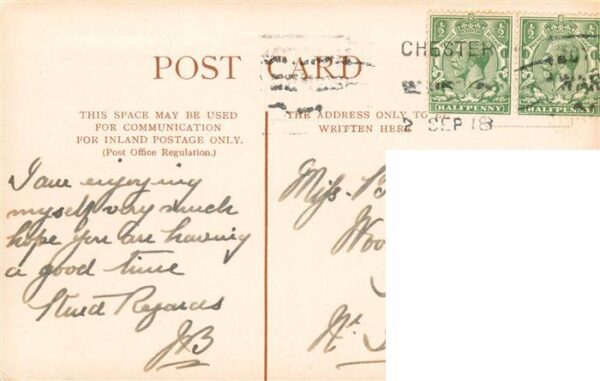 POST CARD
THIS SPACE MAY BE USED
FOR COMMUNICATION
FOR INLAND POSTAGE ONLY.
(Post Office Regulation.)
I am enjoying
myself very much
hope you are having
a good time
Kind Regards
JB
THE ADDRESS ONLY TO
WRITTEN HERE
Miss.
Woo
Nr
CHESTER
2 SEP 18
½ ½
HALFPENNY
½ ½
HALFPENNY